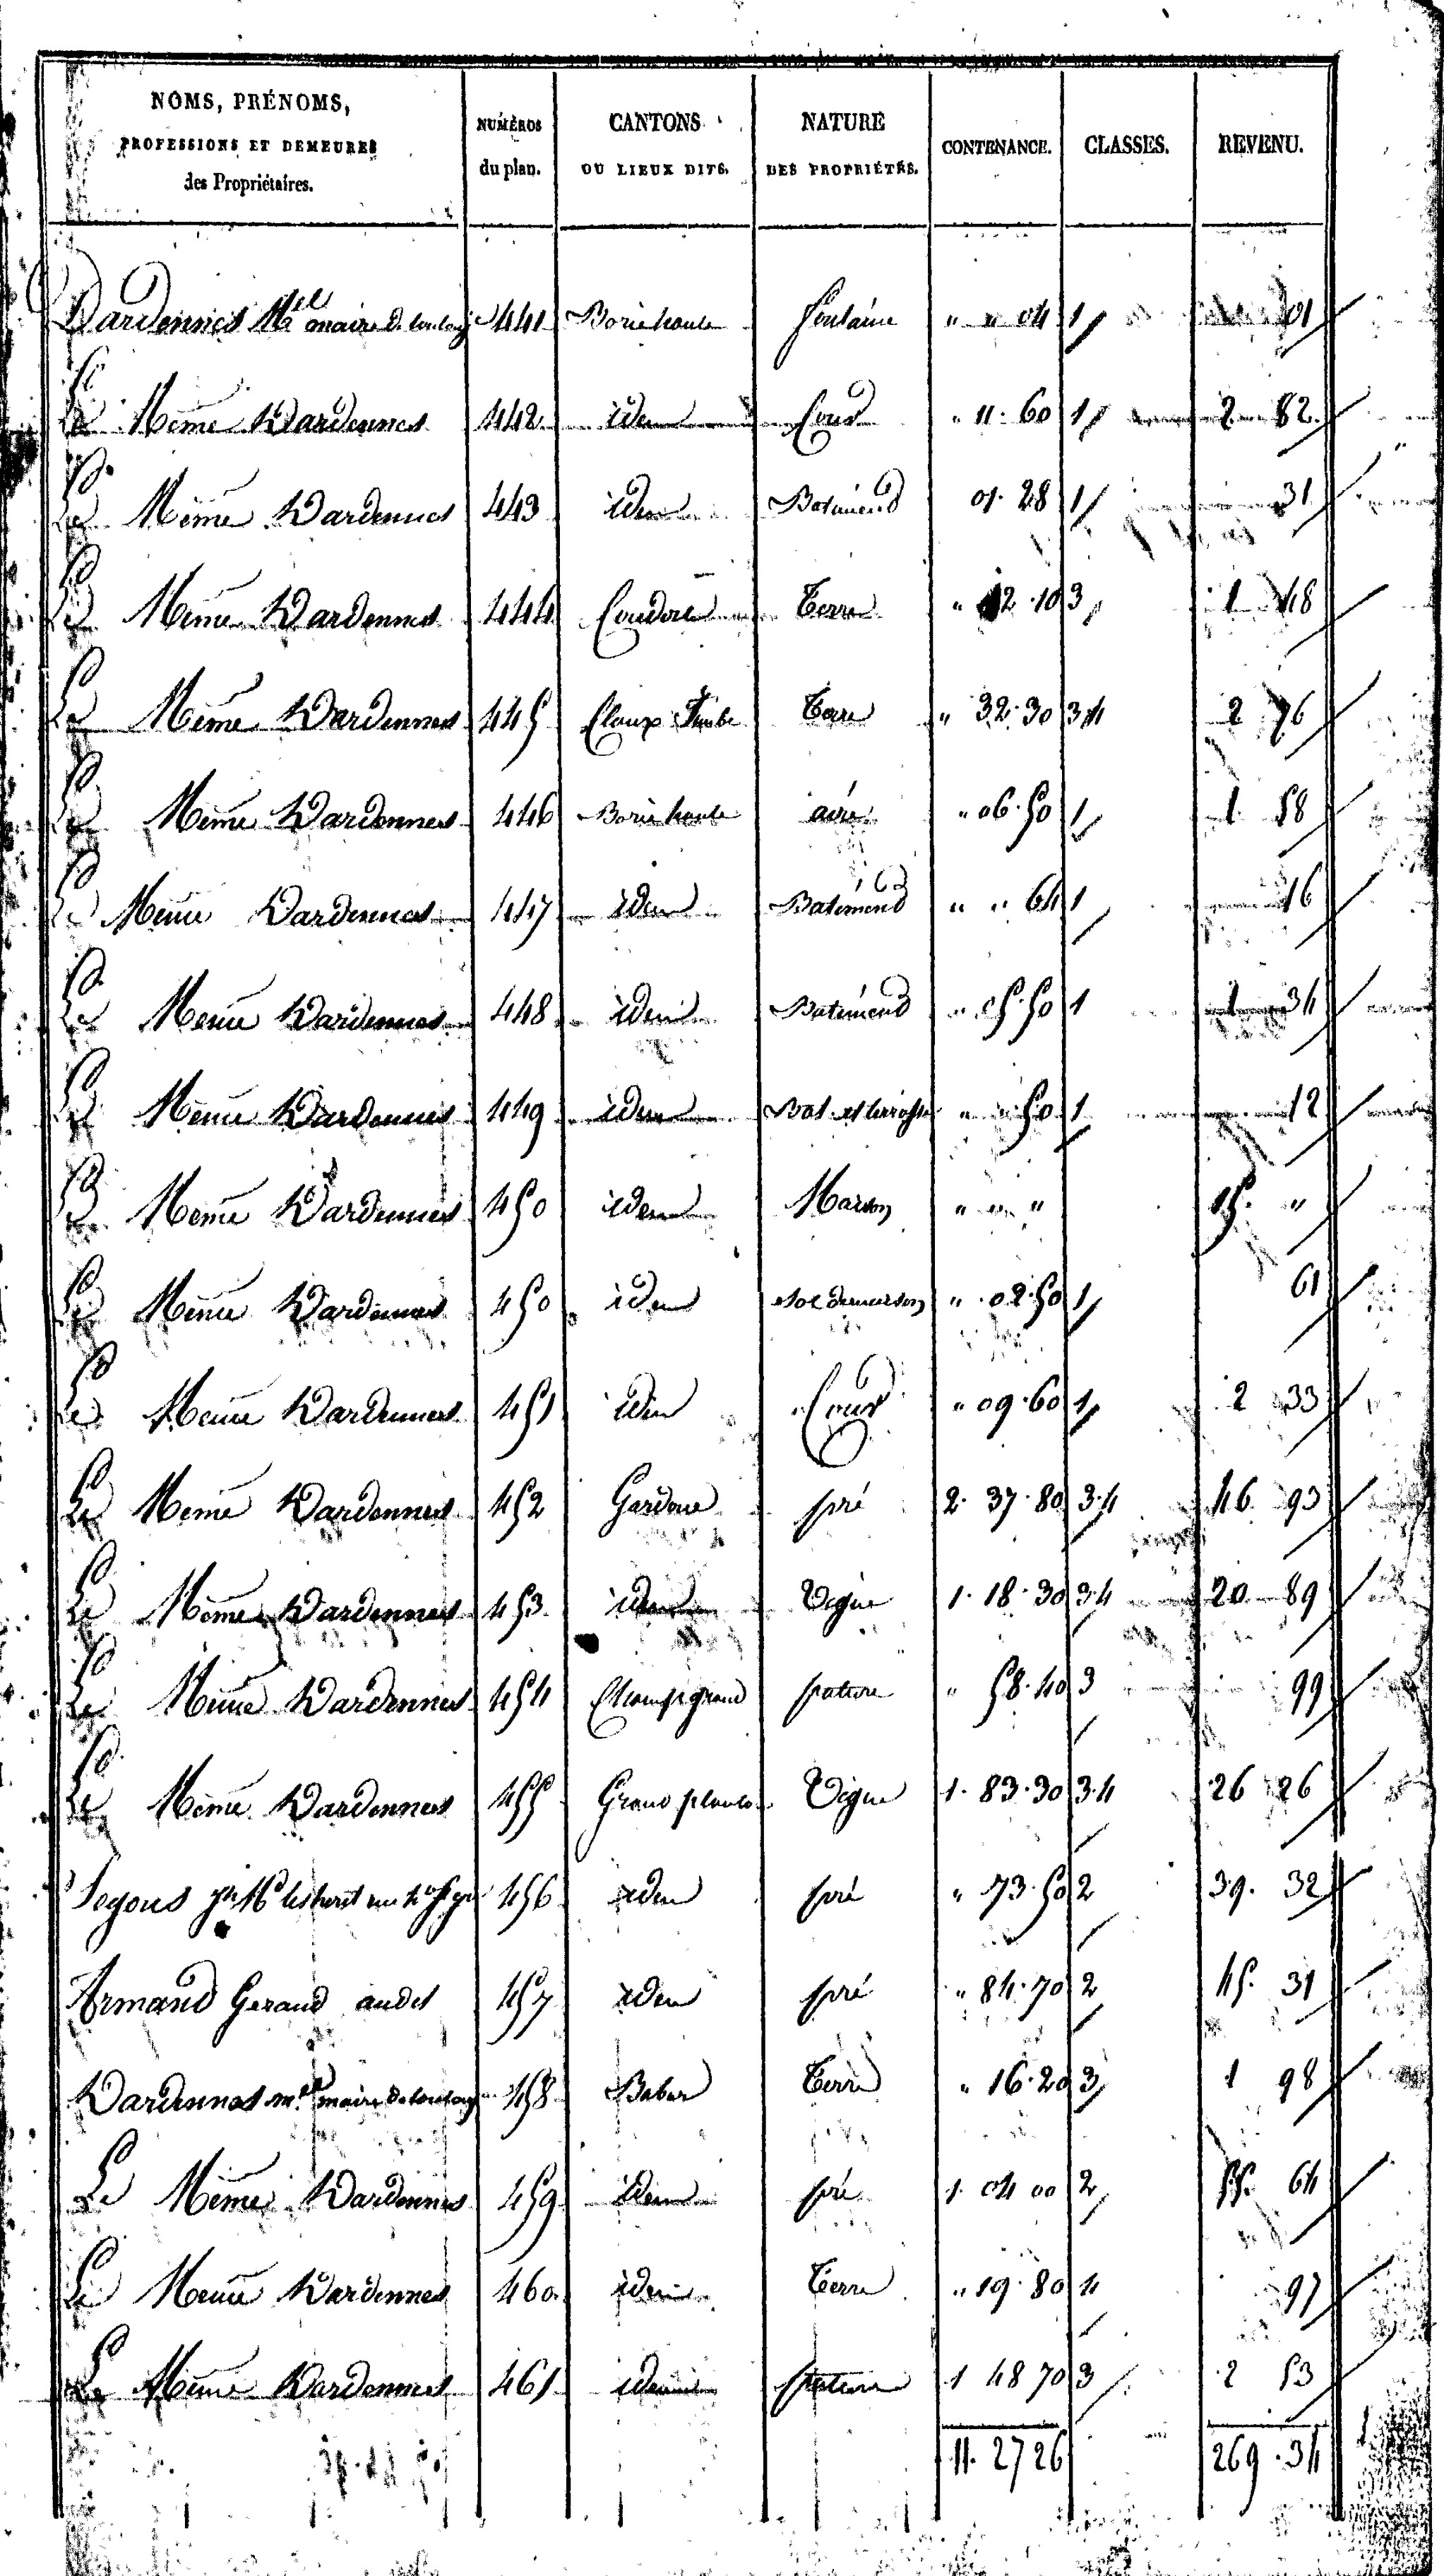 NOMS, PRÉNOMS, PROFESSIONS ET DEMEURES des Propriétaires. NUMÉROS du plan. CANTONS OU LIEUX DITS. NATURE DES PROPRIÉTÉS. CONTENANCE. CLASSES. REVENU.
Dardennes maire 441 Borie haute fontaine " " 04 1 01
Le Même Dardennes 442 idem Cour " 11. 60 1 2 82
Le Même Dardennes 443 idem Batiment 01. 28 1 31
Le Même Dardennes 444 Terre " 12. 10 3 1 48
Le Même Dardennes 445 Terre " 32. 30 3.4 2 76
Le Même Dardennes 446 Borie haute aire " 06. 50 1 1 58
Le Même Dardennes 447 idem Batiment " " 64 1 16
Le Même Dardennes 448 idem Batiment " 05. 50 1 1 34
Le Même Dardennes 449 idem Bat. et terrasse " " 50 1 12
Le Même Dardennes 450 idem Maison " " " 15. "
Le Même Dardennes 450 idem Sol de maison " 02. 50 1 61
Le Même Dardennes 451 idem Cour " 09. 60 1 2 33
Le Même Dardennes 452 Gardoue pré 2. 37. 80 3.4 46. 93
Le Même Dardennes 453 idem Vigne 1. 18. 30 3.4 20 89
Le Même Dardennes 454 Champ grand pature " 58. 40 3 99
Le Même Dardennes 455 Grand plante Vigne 1. 83. 30 3.4 26 26
456 idem pré " 73. 50 2 39. 32
Armand Geraud audit 457 idem pré " 84. 70 2 45. 31
Dardennes maire 458 Terre " 16. 20 3 1 98
Le Même Dardennes 459 idem pré 1. 04 00 2 55. 64
Le Même Dardennes 460 idem Terre " 19. 80 4 97
Le Même Dardennes 461 idem pature 1 48 70 3 2 53
11. 27 26 269. 34